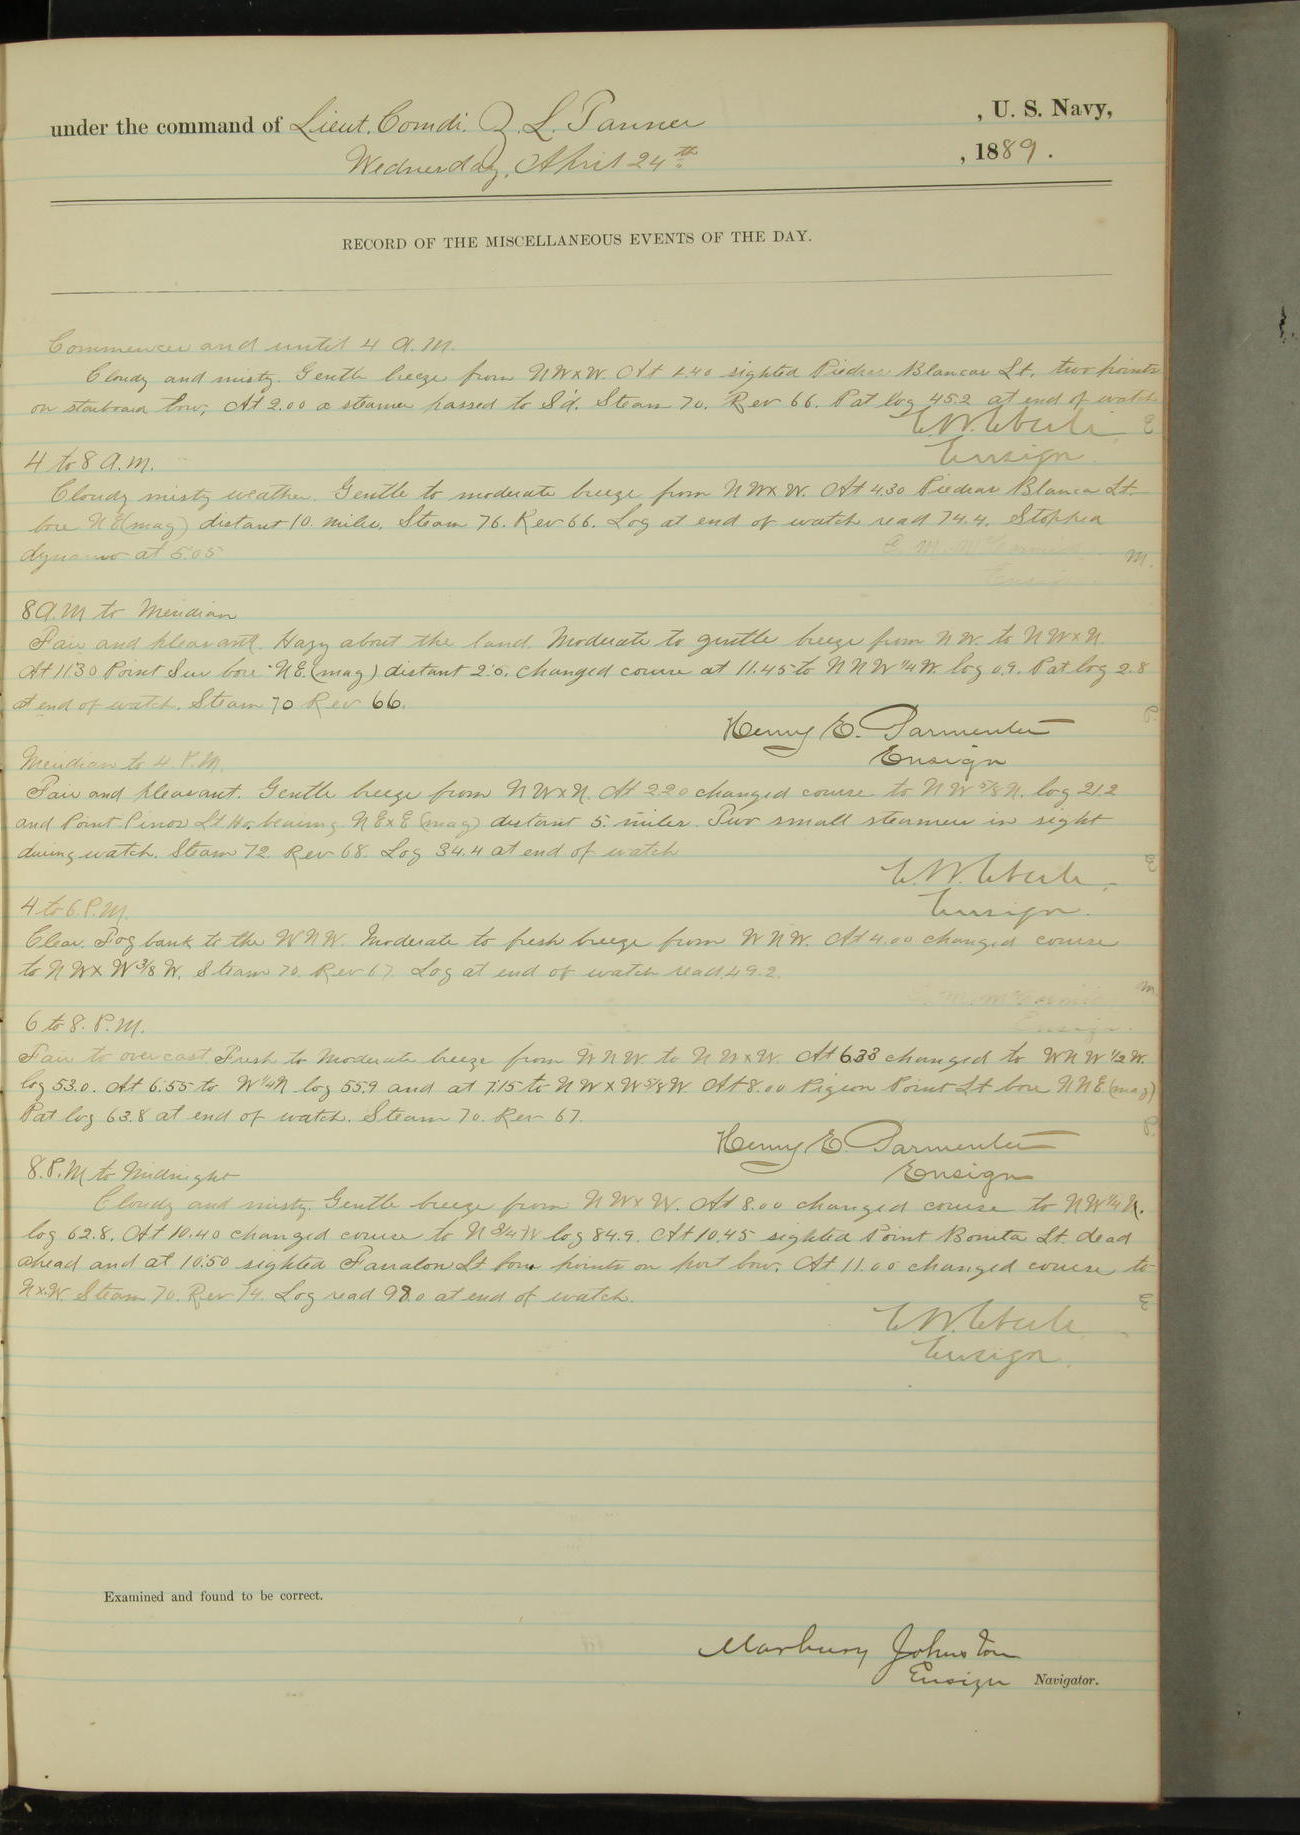 under the command of Lieut. Comdr. Z. L. Tanner , U. S. Navy,
Wednesday, April 24th , 1889.
RECORD OF THE MISCELLANEOUS EVENTS OF THE DAY.
Commences and until 4 A.M.
Cloudy and misty. Gentle breeze from NWxW. At 1.40 sighted Piedras Blancas Lt. two points
on starboard bow, At 2.00 a steamer passed to S'd. Steam 70. Rev 66. Pat log 45.2 at end of watch
E.W. Eberle E
Ensign.
4 to 8 A.M.
Cloudy misty weather. Gentle to moderate breeze from NWxW. At 4.30 Piedras Blanca Lt.
bore NE (mag) distant 10. miles. Steam 76. Rev 66. Log at end of watch read 74.4. Stopped
dynamo at 5.05
E. M. McCormick M.
Ensign
8 A.M to Meridian
Fair and pleasant. Hazy about the land. Moderate to gentle breeze from NW. to NWxN.
At 11.30 Point Sur bore NE. (mag) distant 2'.5. Changed course at 11.45 to NNW 1/4 W. log 0.9. Pat log 2.8
at end of watch. Steam 70 Rev 66.
Henry E. Parmenter P.
Ensign
Meridian to 4. P.M.
Fair and pleasant. Gentle breeze from NWxN. At 2.20 changed course to NW 5/8 N. log 21.2
and Point Pinos Lt Ho. bearing NExE (mag) distant 5. miles. Two small steamers in sight
during watch. Steam 72. Rev 68. Log 34.4 at end of watch
E.W. Eberle. E
Ensign.
4 to 6 P.M.
Clear. Fog bank to the WNW. Moderate to fresh breeze from WNW. At 4.00 changed course
to NWxW 3/8 W. Steam 70. Rev 67. Log at end of watch read 49.2.
E. M. McCormick M
Ensign.
6 to 8. P.M.
Fair to overcast. Fresh to moderate breeze from WNW to NWxW. At 6.33 changed to WNW 1/2 W.
log 53.0. At 6.55 to W 1/4 N log 55.9 and at 7.15 to NWxW 5/8 W At 8.00 Pigeon Point Lt bore NNE (mag)
Pat log 63.8 at end of watch. Steam 70. Rev 67.
Henry E. Parmenter P.
Ensign
8. P.M to Midnight
Cloudy and misty. Gentle breeze from NWxW. At 8.00 changed course to NW 1/4 N.
log 62.8. At 10.40 changed course to N 3/4 W log 84.9. At 10.45 sighted Point Bonita Lt. dead
ahead and at 10.50 sighted Farralon Lt four points on port bow. At 11.00 changed course to
NxW. Steam 70. Rev 74. Log read 98.0 at end of watch.
E.W. Eberle. E
Ensign.
Examined and found to be correct.
Marbury Johnston
Ensign Navigator.